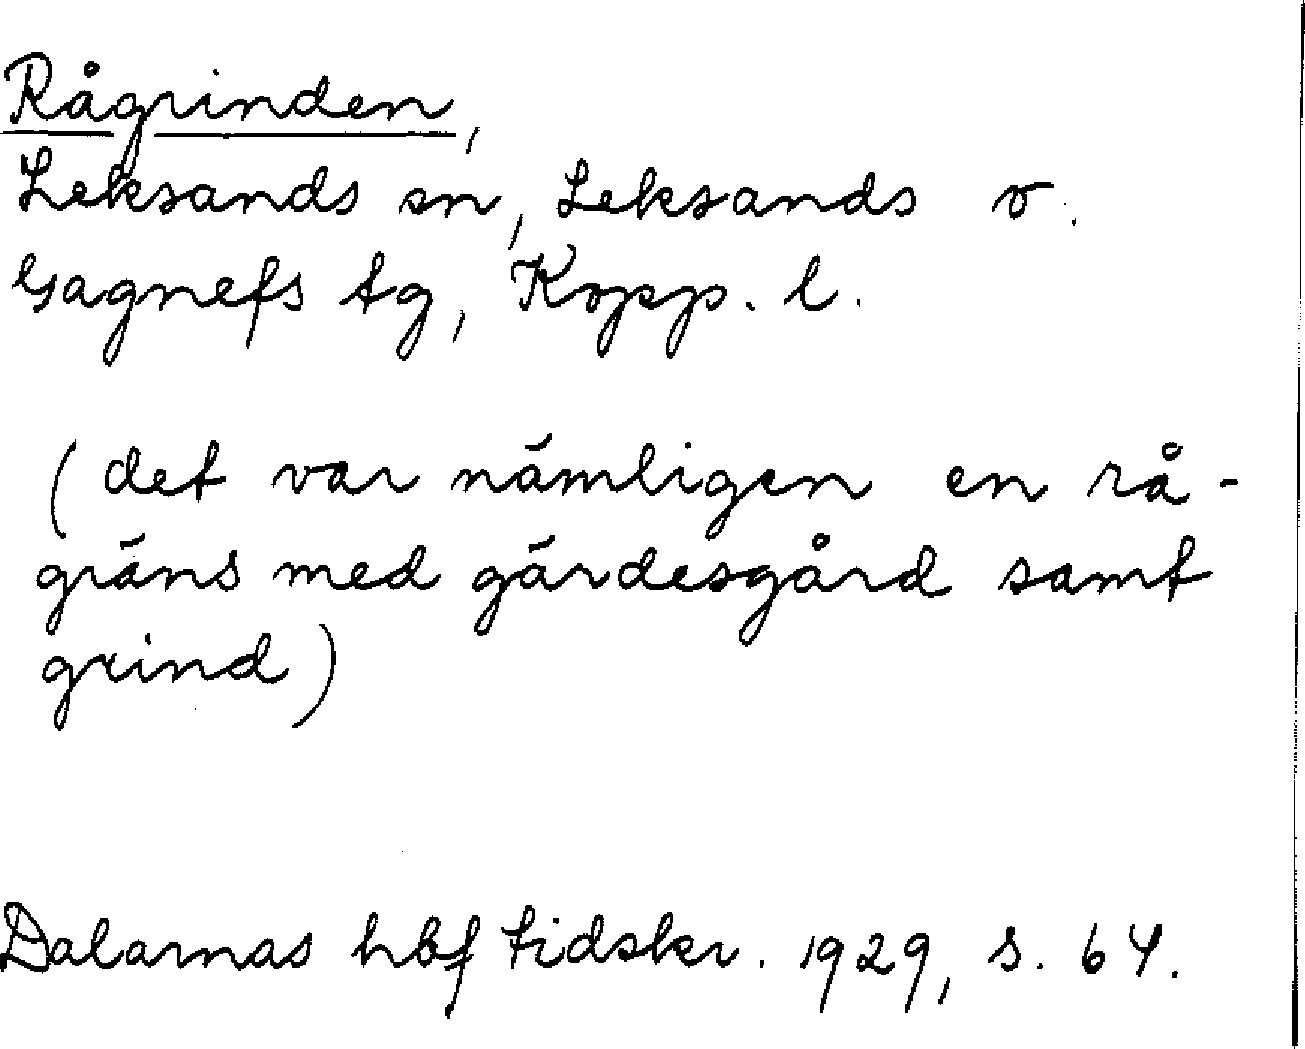 Rågrinden,
Leksands sn, Leksands o.
Gagnefs tg, Kopp. l.
(det var nämligen en rå-
gräns med gärdesgård samt
grind)
Dalarnas hbf tidskr. 1929, s. 64.